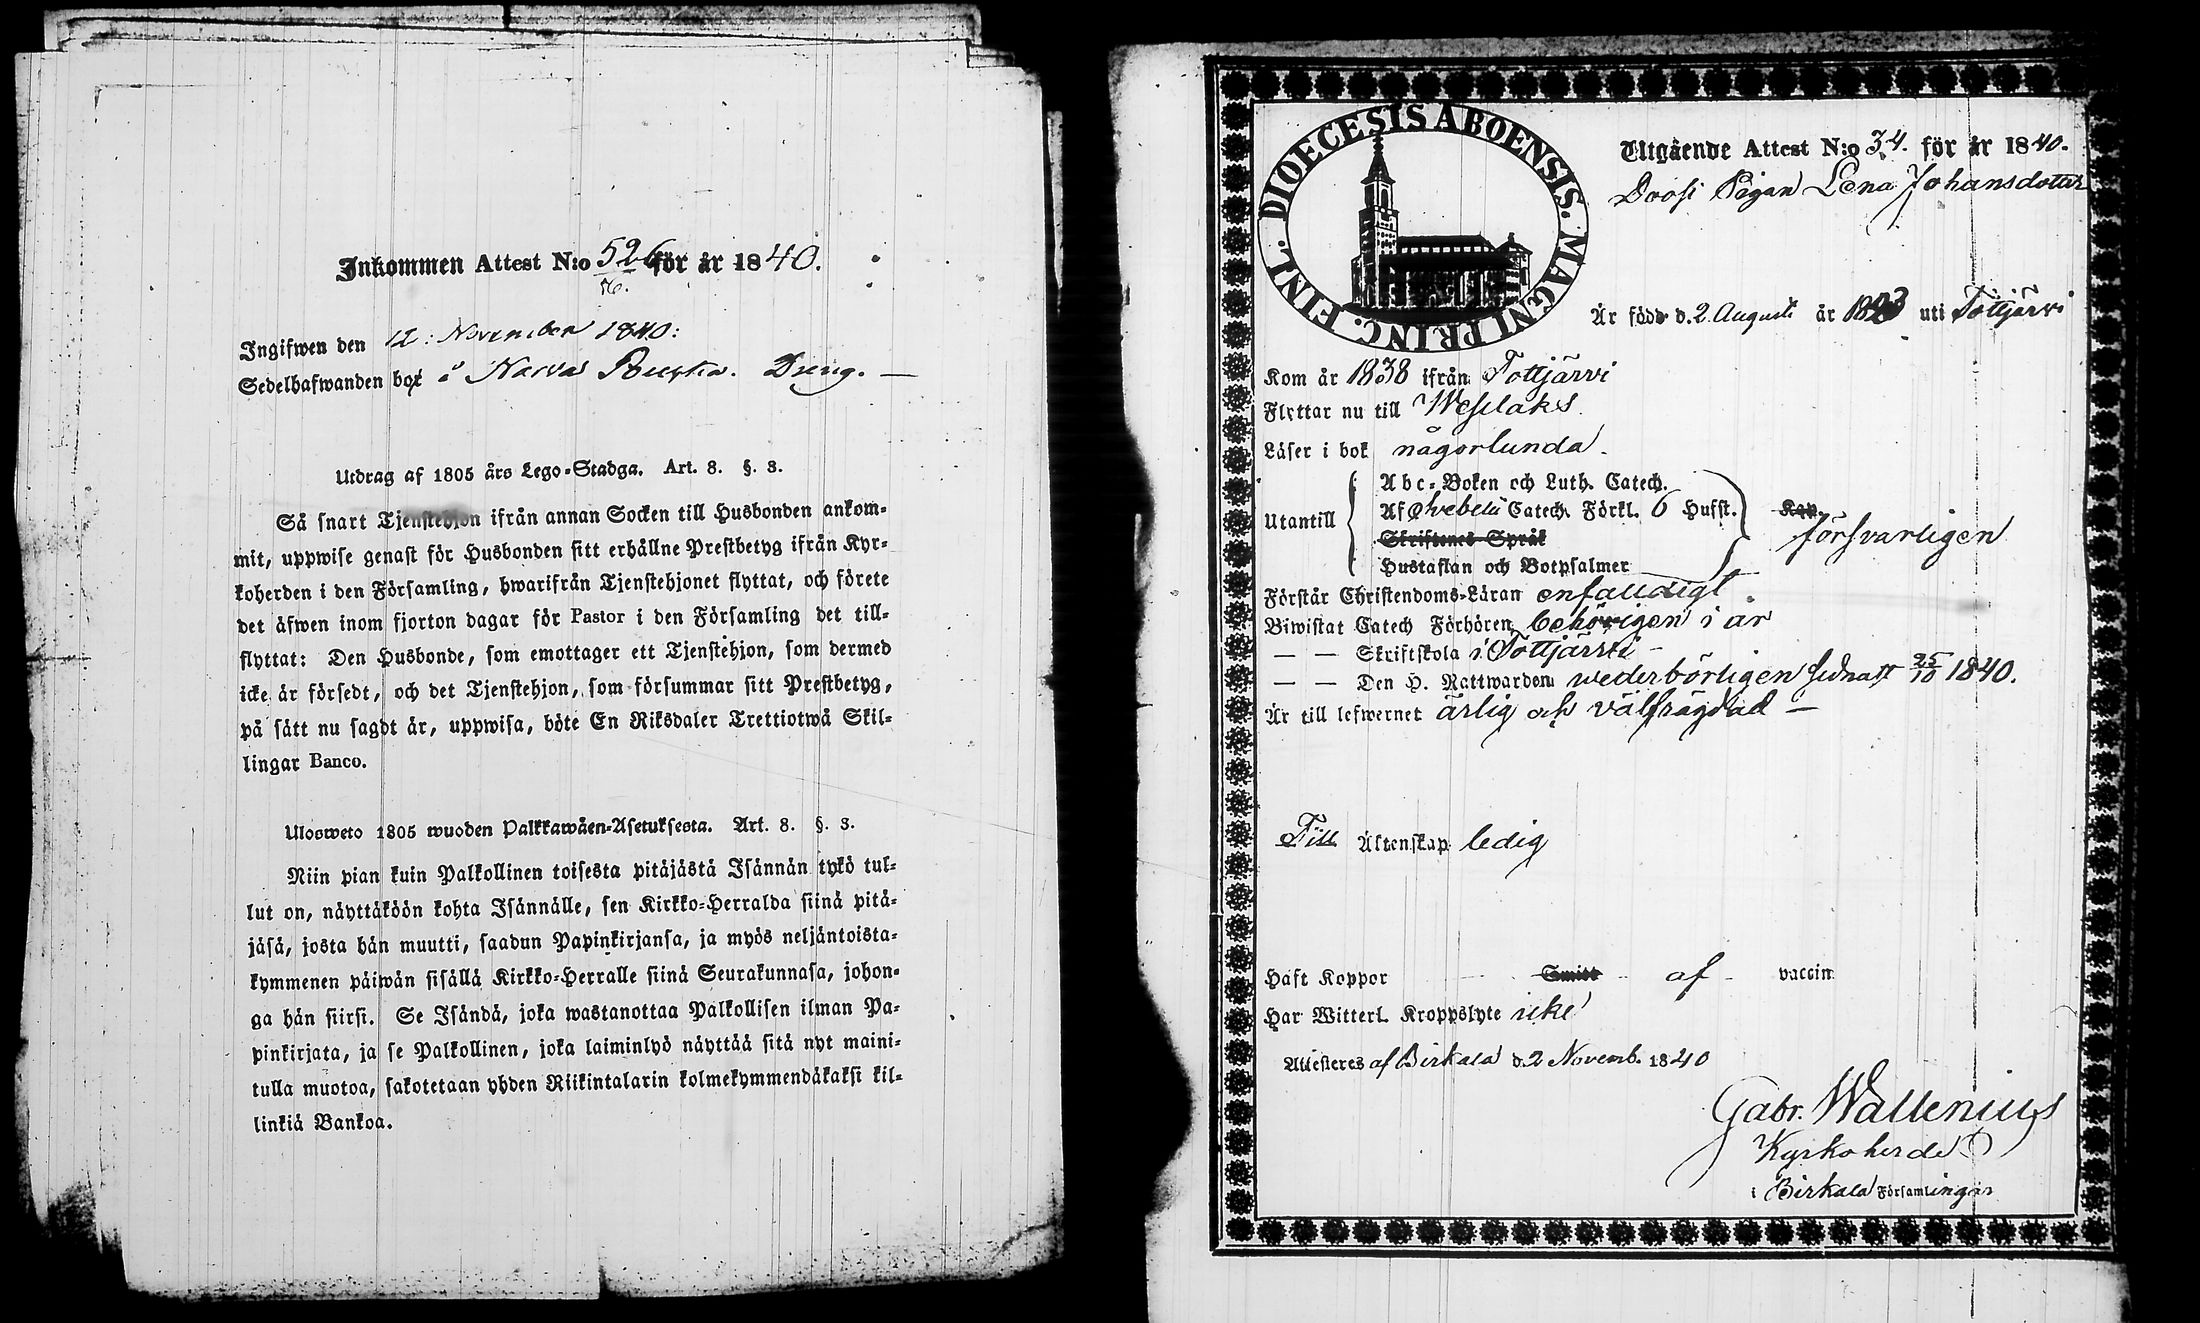 Inkommen Attest N:o 526 för år 1840.
76.
Ingifwen den 12: November 1840:
Sedelhafwanden bor å Narva Dreng. —
Utdrag af 1805 års Lego-Stadga. Art. 8. §. 3.
Så snart Tjenstehjon ifrån annan Socken till Husbonden ankom-
mit, uppwise genast för Husbonden sitt erhållne Prestbetyg ifrån Kyr-
koherden i den Församling, hwarifrån Tjenstehjonet flyttat, och förete
det äfwen inom fjorton dagar för Pastor i den Församling det till-
flyttat: Den Husbonde, som emottager ett Tjenstehjon, som dermed
icke är försedt, och det Tjenstehjon, som försummar sitt Prestbetyg,
på sätt nu sagdt är, uppwisa, böte En Riksdaler Trettiotwå Skil-
lingar Banco.
Uloosweto 1805 wuoden Palkkawäen-Asetuksesta. Art. 8. §. 3.
Niin pian kuin Palkollinen toisesta pitäjästä Isännän tykö tul-
lut on, näyttäköön kohta Isännälle, sen Kirkko-Herralda siinä pitä-
jäsä, josta hän muutti, saadun Papinkirjansa, ja myös neljäntoista-
kymmenen päiwän sisällä Kirkko-Herralle siinä Seurakunnasa, johon-
ga hän siirsi. Se Isändä, joka wastanottaa Palkollisen ilman Pa-
pinkirjata, ja se Palkollinen, joka laiminlyö näyttää sitä nyt maini-
tulla muotoa, sakotetaan yhden Riikintalarin kolmekymmendäkaksi kil-
linkiä Bankoa.
DIOECESIS ABOENSIS. MAGNI PRINC. FINL.
Utgående Attest N:o 34. för år 1840.
Pigan Lena Johansdotter
Är född d. 2 Augusti år 1823 uti Tottjärvi
Kom år 1838 ifrån Tottjärvi
Flyttar nu till Wesilaks
Läser i bok någorlunda.
Utantill
Abc-Boken och Luth. Catech.
Af Svebelii Catech. Förkl. 6 Hufst. Kap.
Skriftenes Språk
försvarligen
Hustaflan och Botpsalmer
Förstår Christendoms-Läran enfaldigt.
Biwistat Catech Förhören behörigen i år
— — Skriftskola i Tottjärvi —
— — Den H. Nattwarden wederbörligen sednast 25/10 1840.
Är till lefwernet ärlig och välfrägdad —
Till Äktenskap ledig
Haft Koppor — Smitt — af — vaccin
Har Witterl. Kroppslyte icke
Attesteres af Birkala d. 2 Novemb. 1840
Gabr. Wallenius
Kyrkoherde
i Birkala Församlingar